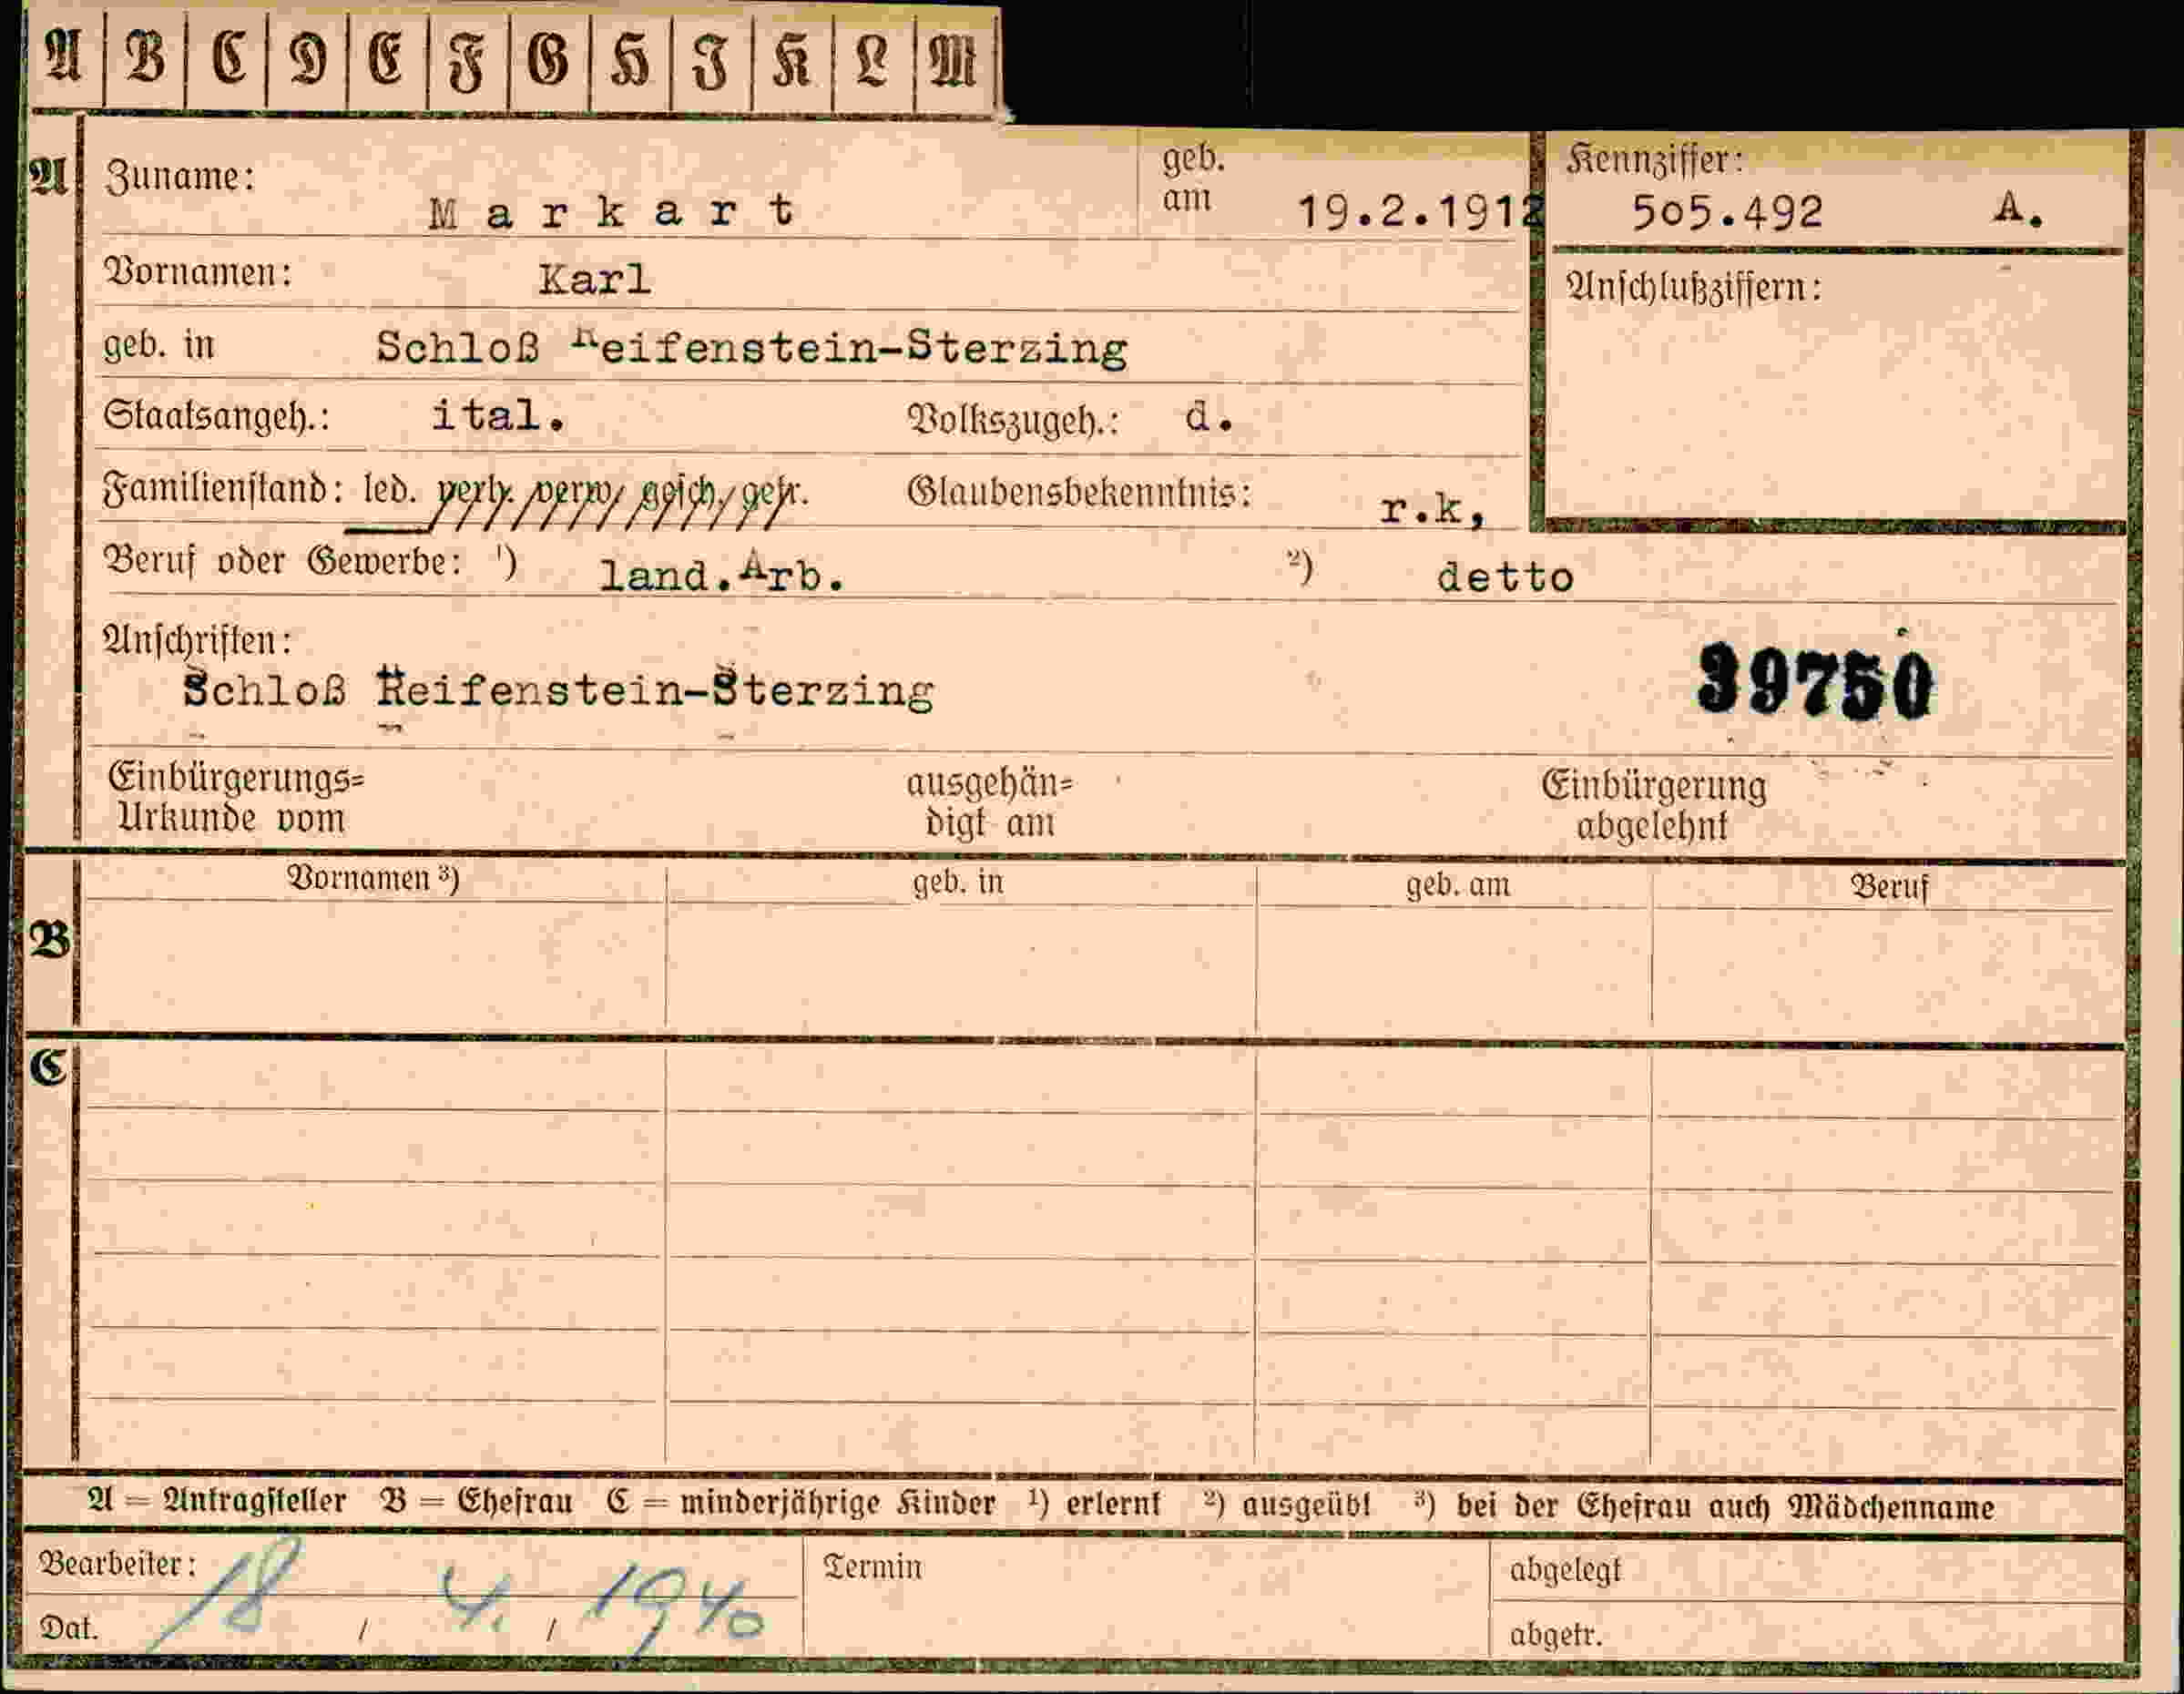 A B C D E F G H I K L M
A Zuname: Markart geb. am 19.2.1912 Kennziffer: 505.492 A.
Vornamen: Karl Anschlußziffern:
geb. in Schloß Reifenstein-Sterzing
Staatsangeh.: ital. Volkszugeh.: d.
Familienstand: led. verh. verw. gesch. getr. Glaubensbekenntnis: r.k,
Beruf oder Gewerbe: ¹) land.Arb. ²) detto
Anschriften:
Schloß Reifenstein-Sterzing 39750
Einbürgerungs= ausgehän= Einbürgerung
Urkunde vom digt am abgelehnt
Vornamen ³) geb. in geb. am Beruf
B
C
A = Antragsteller B = Ehefrau C = minderjährige Kinder ¹) erlernt ²) ausgeübt ³) bei der Ehefrau auch Mädchenname
Bearbeiter: Termin abgelegt
Dat. 18 / 4. / 1940 abgetr.